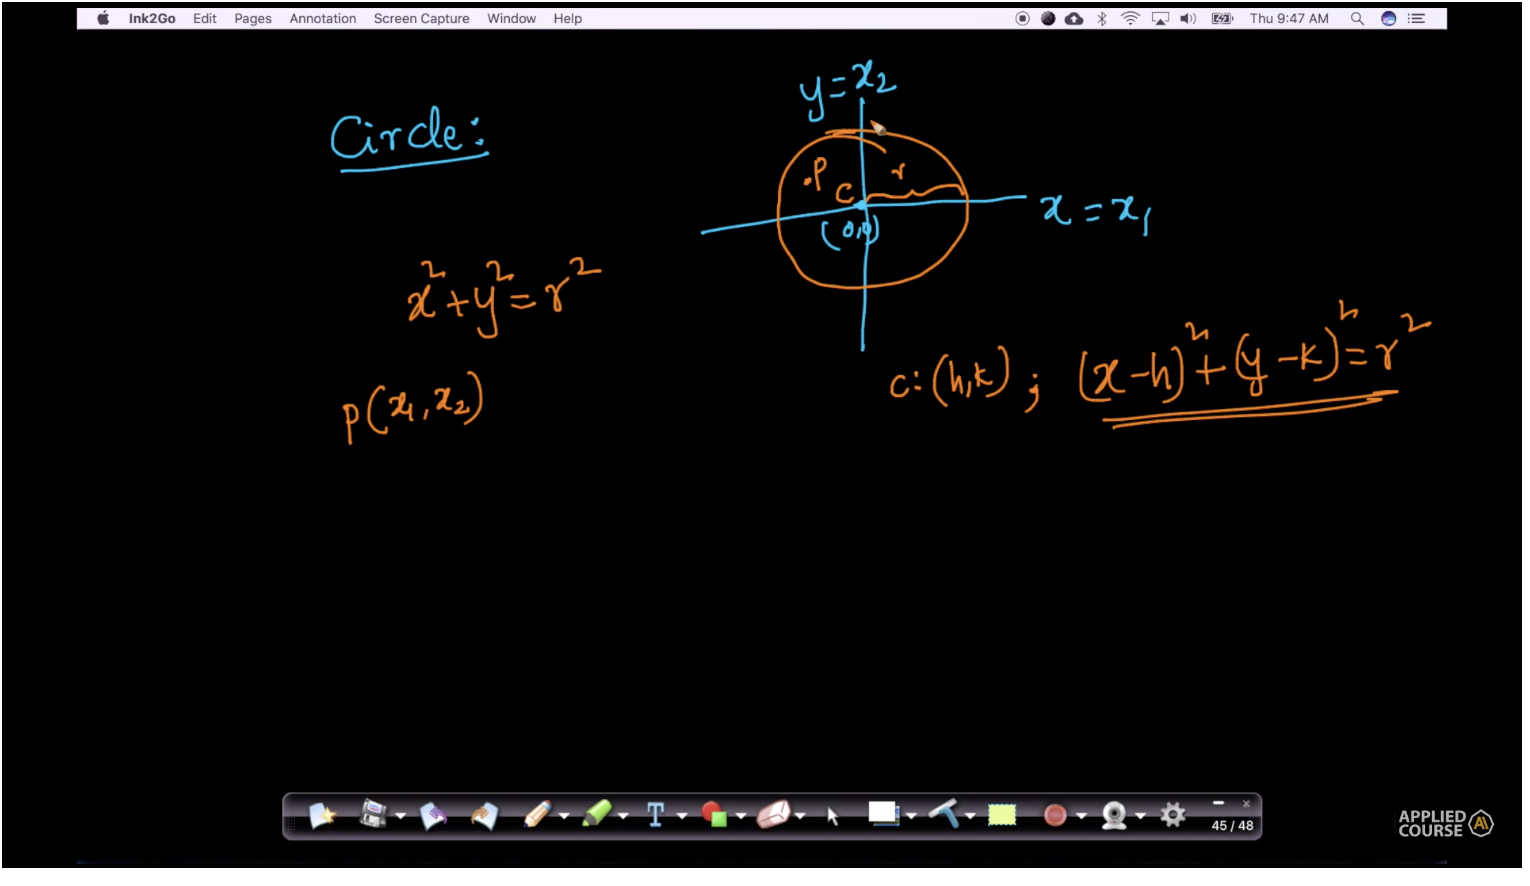 Ink2Go Edit Pages Annotation Screen Capture Window Help Thu 9:47 AM
y = x₂
Circle:
.P
r
C
x = x₁
(0,0)
x² + y² = r²
C: (h,k) ; (x-h)² + (y-k)² = r²
P(x₁, x₂)
T
45 / 48
APPLIED
COURSE